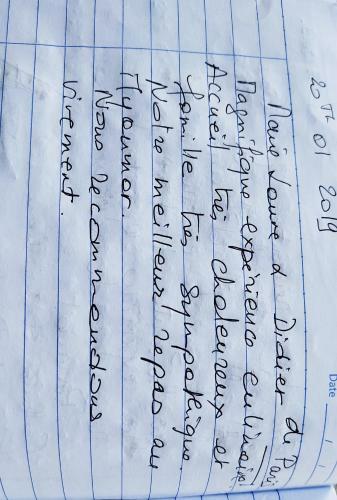 Date / /
20TH 01 2019
Marie Laure & Didier de Paris
Magnifique expérience culinaire
Accueil très chaleureux et
famille très sympathique.
Notre meilleur repas au
Myanmar.
Nous recommandons
vivement.